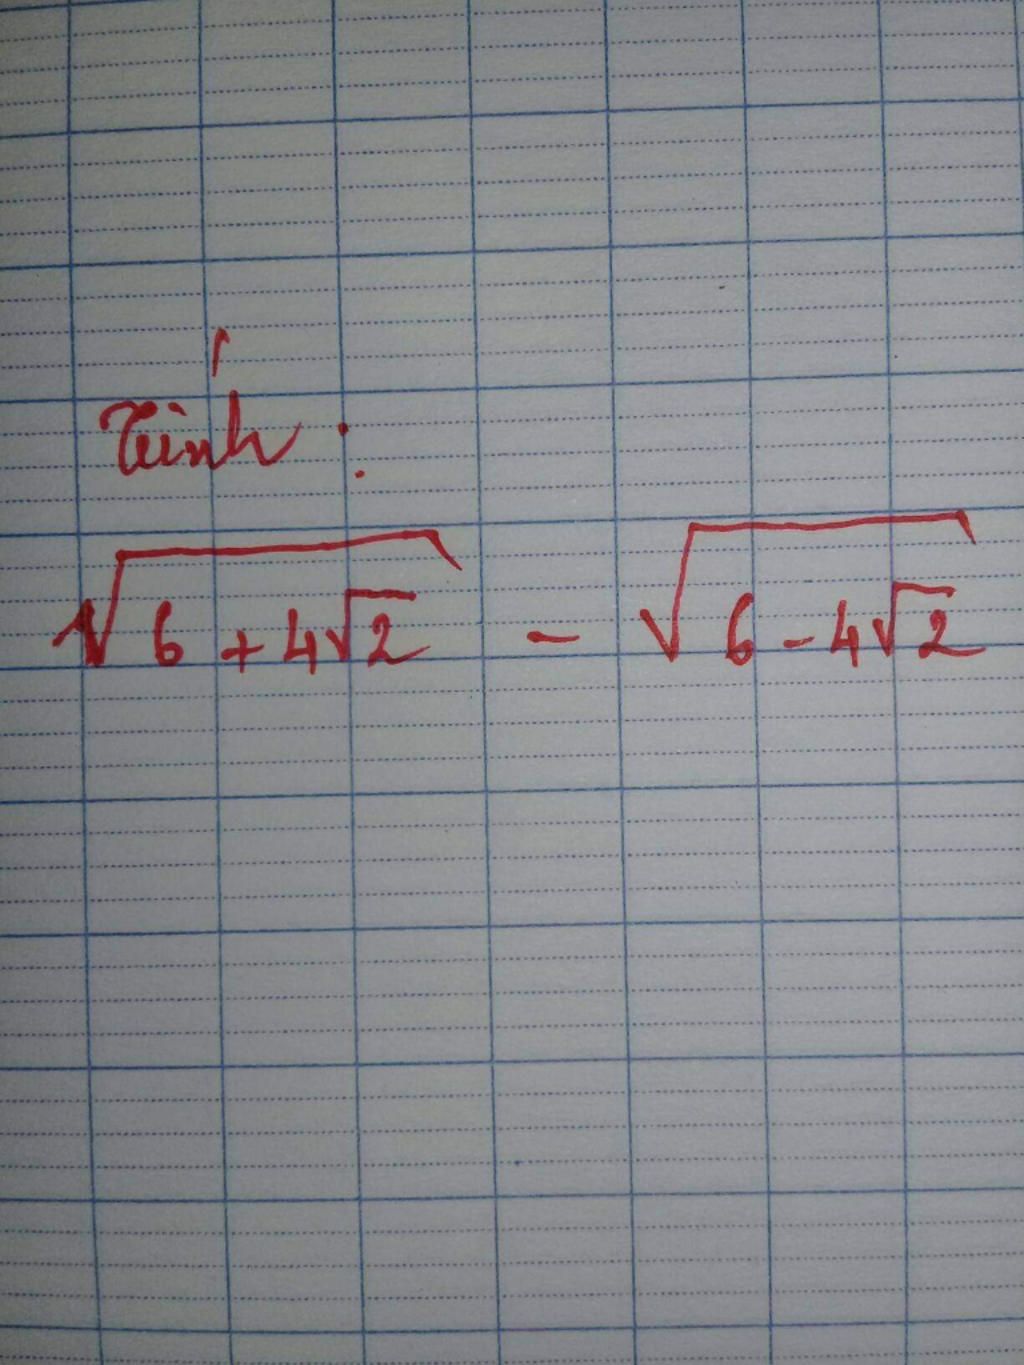 Tính :
√(6 + 4√2) - √(6 - 4√2)